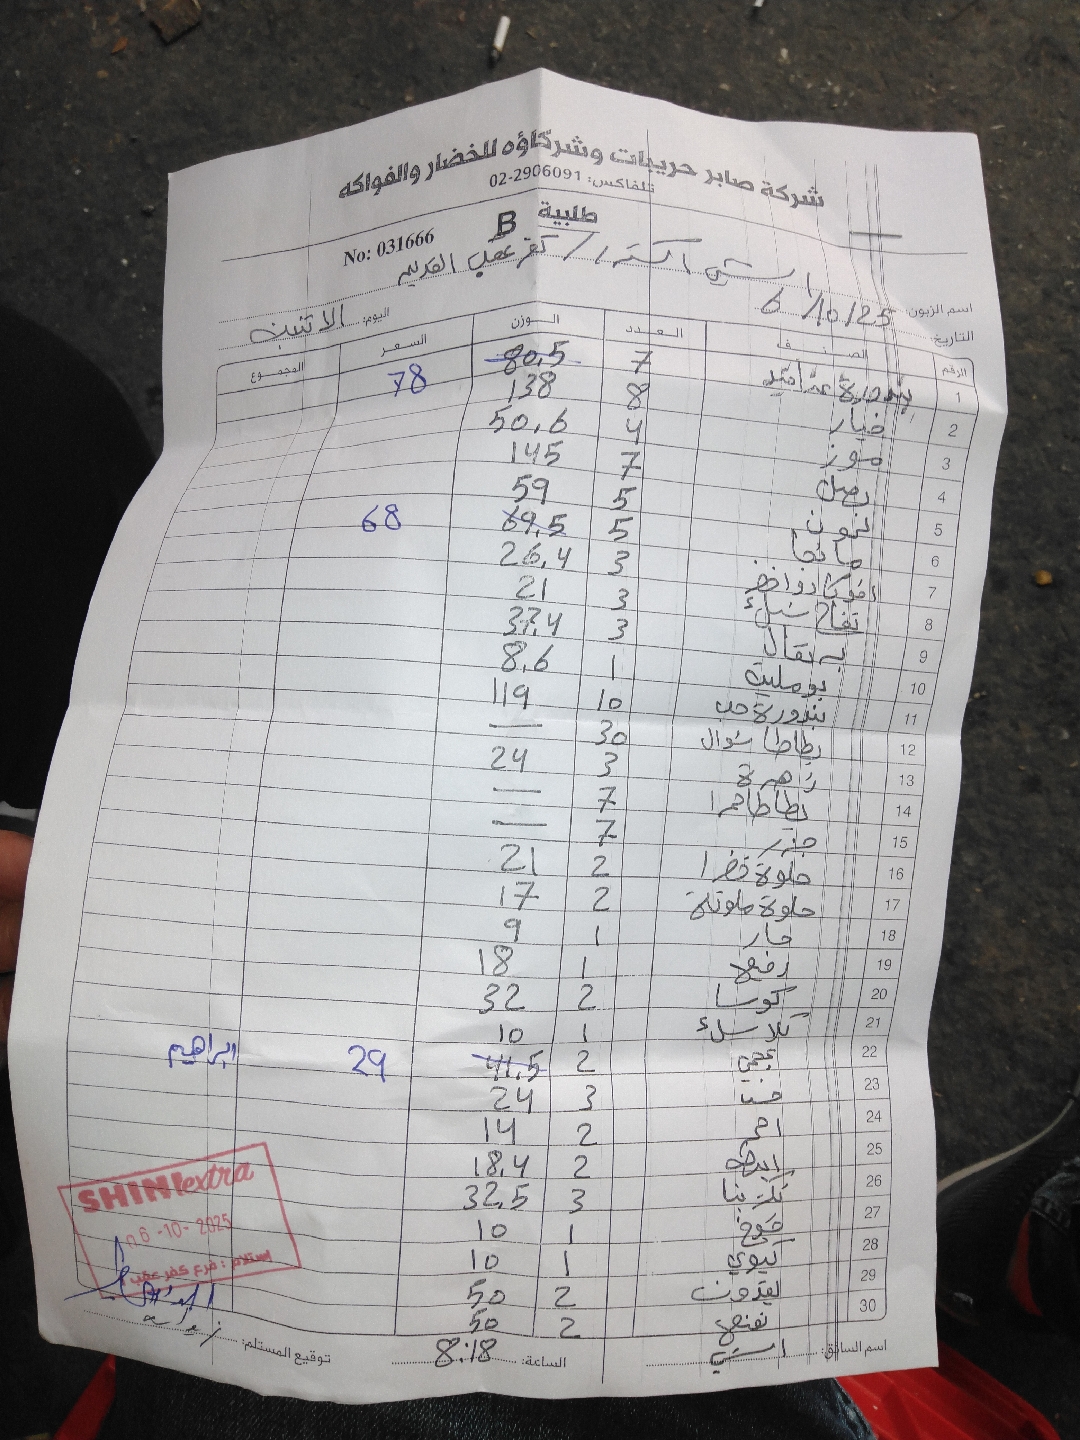 شركة صابر حريبات وشركاؤه للخضار والفواكه
تلفاكس: 02-2906091
طلبية B
No: 031666
اسم الزبون: الشني اكسترا / كفر عقب القديم
التاريخ: 6/10/25 اليوم: الاثنين
الرقم الصنف العدد الوزن السعر المجموع
1 بندورة 7 80,5 78
2 خيار 8 138
3 موز 4 50,6
4 بصل 7 145
5 ليمون 5 59
6 مانجا 5 69,5 68
7 افوكادو اخضر 3 26,4
8 تفاح 3 21
9 برتقال 3 37,4
10 بوملي 1 8,6
11 بندورة حب 10 119
12 بطاطا شوال 30 —
13 زهرة 3 24
14 بطاطا حمرا 7 —
15 جزر 7 —
16 حلوة خضرا 2 21
17 حلوة ملونة 2 17
18 حار 1 9
19 رفيع 1 18
20 كوسا 2 32
21 1 10
22 عجمي 2 41,5 29 ابراهيم
23 خس 3 24
24 2 14
25 2 18,4
26 3 32,5
27 خوخ 1 10
28 كيوي 1 10
29 2 50
30 2 50
SHINI extra
06-10-2025
استلام: فرع كفر عقب
اسم السائق: الساعة: 8:18 توقيع المستلم: